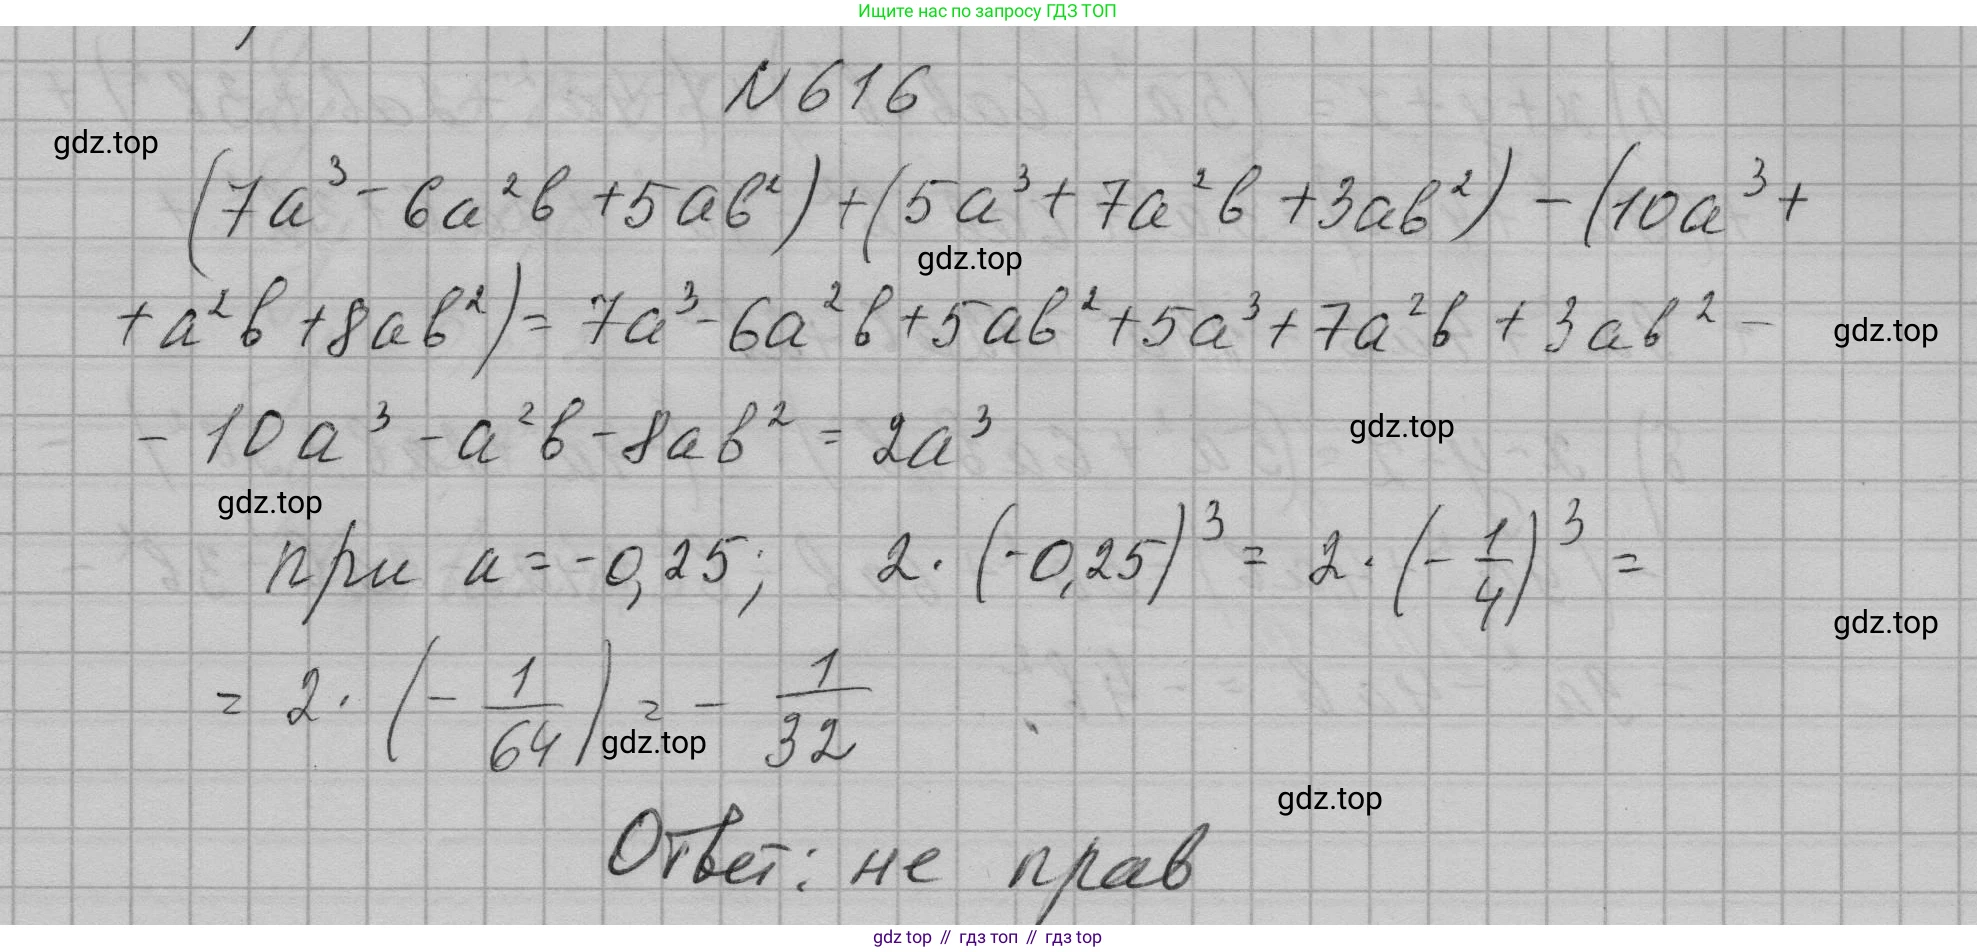 Ищите нас по запросу ГДЗ ТОП
N 616
gdz.top
(7a³ - 6a²b + 5ab²) + (5a³ + 7a²b + 3ab²) - (10a³ +
gdz.top
+ a²b + 8ab²) = 7a³ - 6a²b + 5ab² + 5a³ + 7a²b + 3ab² -
gdz.top
- 10a³ - a²b - 8ab² = 2a³
gdz.top
gdz.top
при a = -0,25; 2 · (-0,25)³ = 2 · (-1/4)³ =
gdz.top
= 2 · (-1/64) = - 1/32
gdz.top
gdz.top
Ответ: не прав
gdz top // гдз топ // гдз top